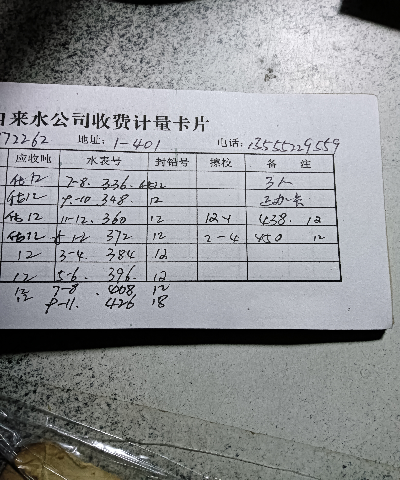 自来水公司收费计量卡片
72262 地址: 1-401 电话: 13555229559
应收吨 水表号 封铅号 擦校 备 注
估12 7-8. 336. 估12 3人
估12 9-10 348. 12
估12 11-12. 360 12 12-1 438. 12
估12 1-2 372 12 2-4 450 12
12 3-4. 384 12
12 5-6. 396 12
12 7-8 408 12
9-11. 426 18